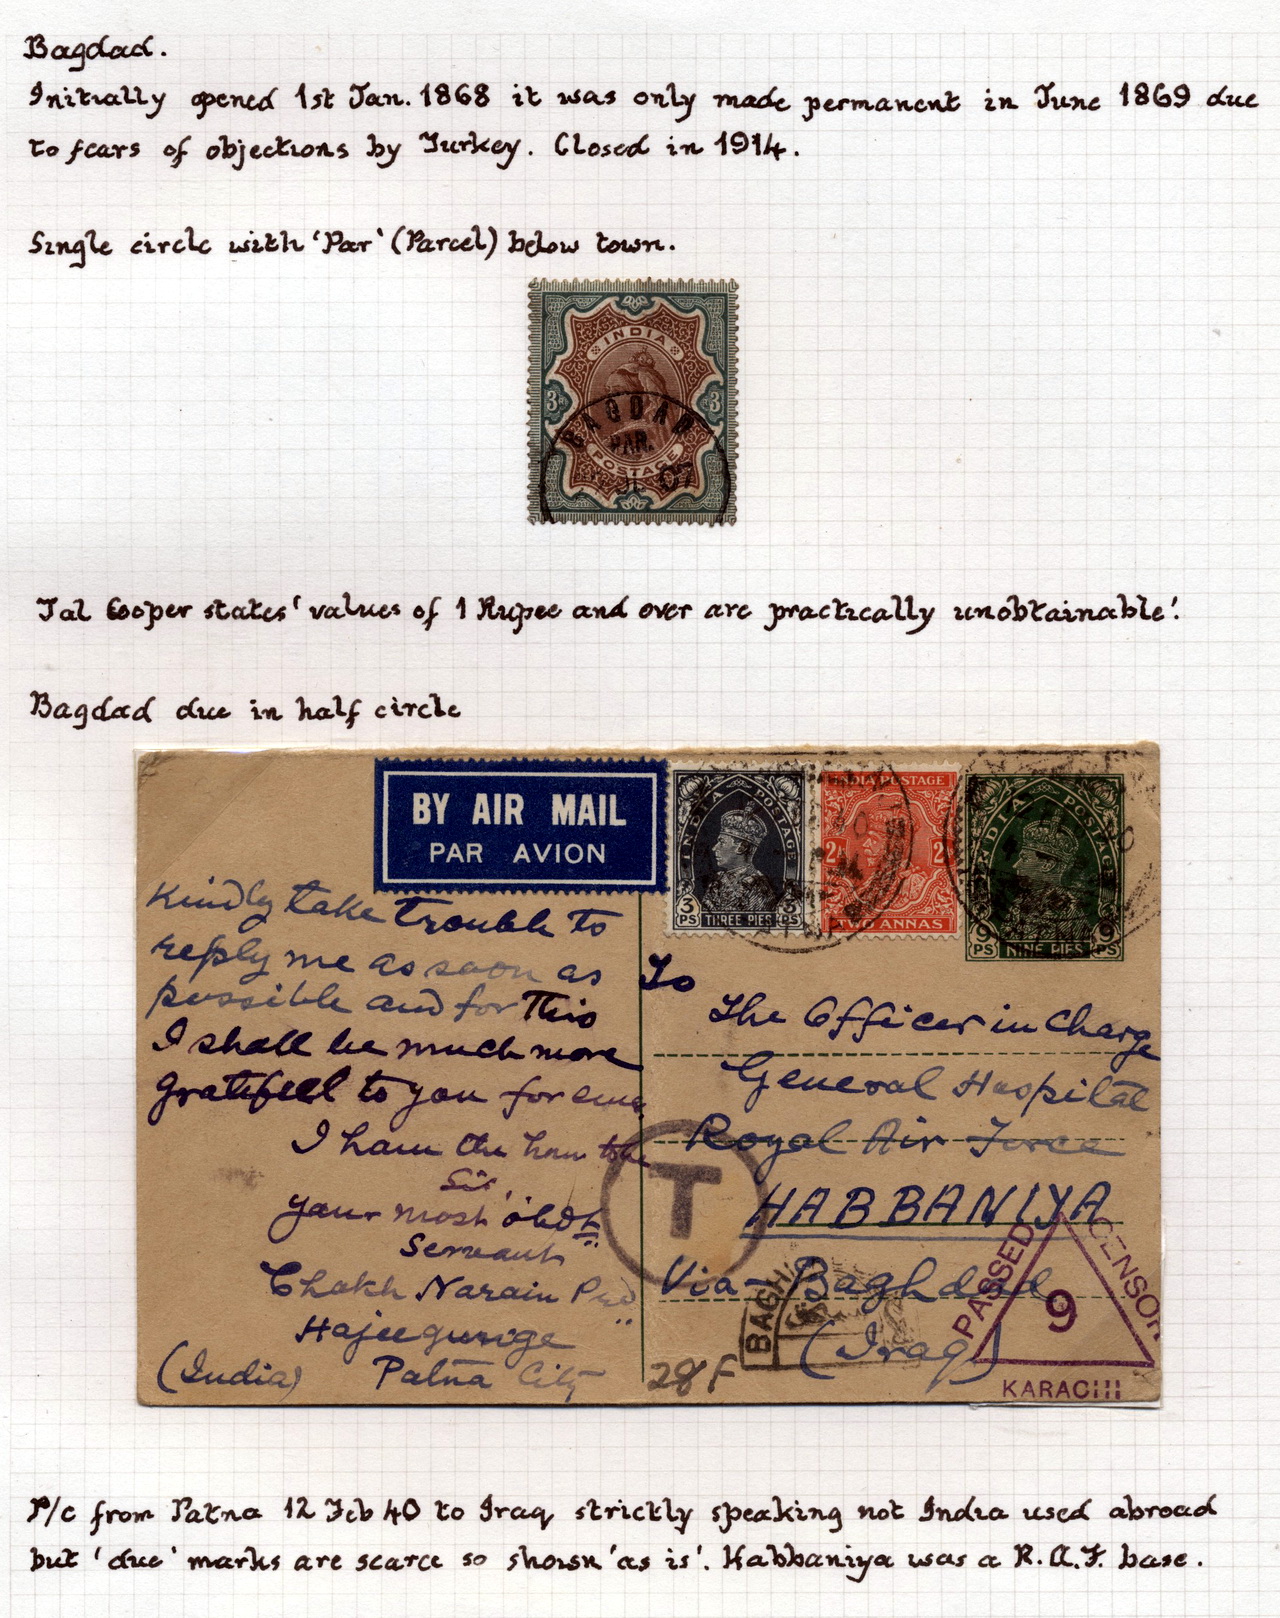 Bagdad.
Initially opened 1st Jan. 1868 it was only made permanent in June 1869 due
to fears of objections by Turkey. Closed in 1914.
Single circle with 'Par' (Parcel) below town.
INDIA
3 3
BAGDAD
PAR.
POSTAGE
JL 07
Jal Cooper states 'values of 1 Rupee and over are practically unobtainable'.
Bagdad due in half circle
BY AIR MAIL
PAR AVION
INDIA POSTAGE
3 PS THREE PIES 3 PS
INDIA POSTAGE
2 2
TWO ANNAS
INDIA POSTAGE
9 PS NINE PIES 9 PS
PATNA
Kindly take trouble to
reply me as soon as
possible and for This
I shall be much more
gratefull to you for
I have the to be
Sir,
your most obdt
Servant
Narain
(India) Patna City
To
The Officer in Charge
General Hospital
Royal Air Force
HABBANIYA
Via - Baghdad
(Iraq)
T
BAGH
28 F
PASSED CENSOR
9
KARACHI
P/c from Patna 12 Feb 40 to Iraq strictly speaking not India used abroad
but 'due' marks are scarce so shown 'as is'. Habbaniya was a R.A.F. base.